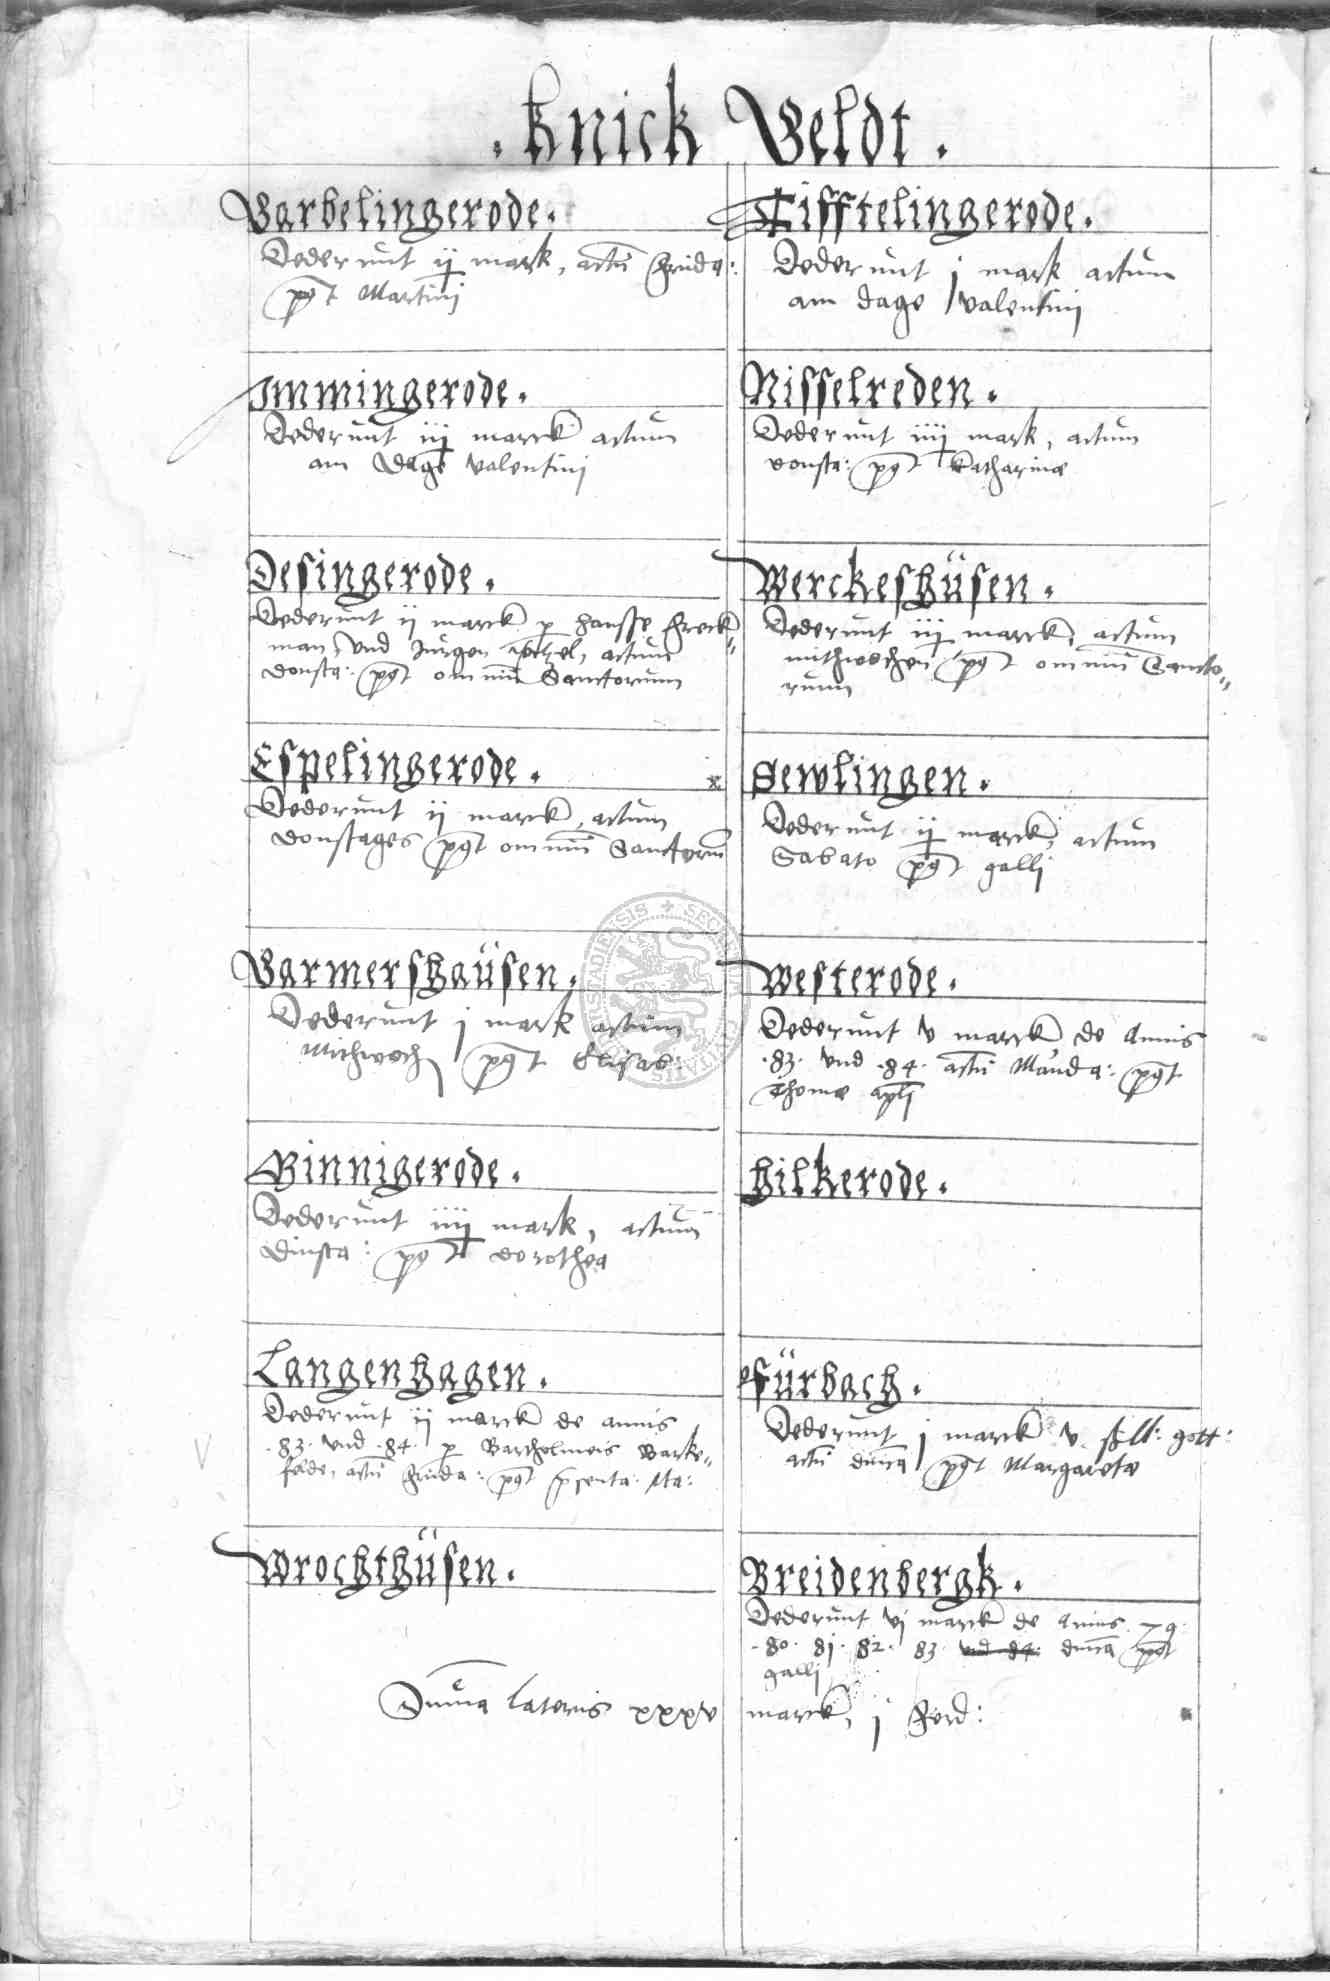 . Knick Veldt .
Barbelingerode .
Dederunt ij mark, actu Frida:
pgt Martinj
Immingerode .
Dederunt iij marck actum
am Dage Valentinj
Desingerode .
Dederunt ij marck p hansse Freck„
man, Vnd Jurgen actum
Donsta: pgt omniu Sanctorum
Espelingerode .
Dederunt ij marck, actum
Donstages pgt omniu Sanctoru
Barmershaüsen .
Dederunt j mark actum
Mithwoch pgt Elisab:
Binnigerode .
Dederunt iiij mark, actum
Dinsta: pgt Dorothea
Langenhagen .
Dederunt ij marck de annis
. 83 . Vnd . 84 . p Bartholmeis Barke„
felde, actu Frida: pgt psenta: Ma:
Wrochthüsen .
Tifftelingerode .
Dederunt j mark actum
am dage Valentinj
Nisselreden .
Dederunt iiij mark, actum
Donsta: pgt Katharinæ
Werckeshüsen .
Dederunt iij marck, actum
mithwochen pgt omniu Sancto„
rum
x Sewlingen .
Dederunt ij marck, actum
Sabato pgt gallj
Westerode .
Dederunt v marck de Annis
. 83 . Vnd . 84 . actu Manda: pgt
Thomæ aplj
Hilkerode .
Fürbach .
Dederunt j marck v ßll: gott:
actu dnica pgt Margaretæ
Breidenbergk .
Dederunt vj marck de Annis . 79 .
. 80 . 81 . 82 . 83 . vnd 84 . dnica pgt
gallj
Suma lateris xxxv marck, j Ferd: